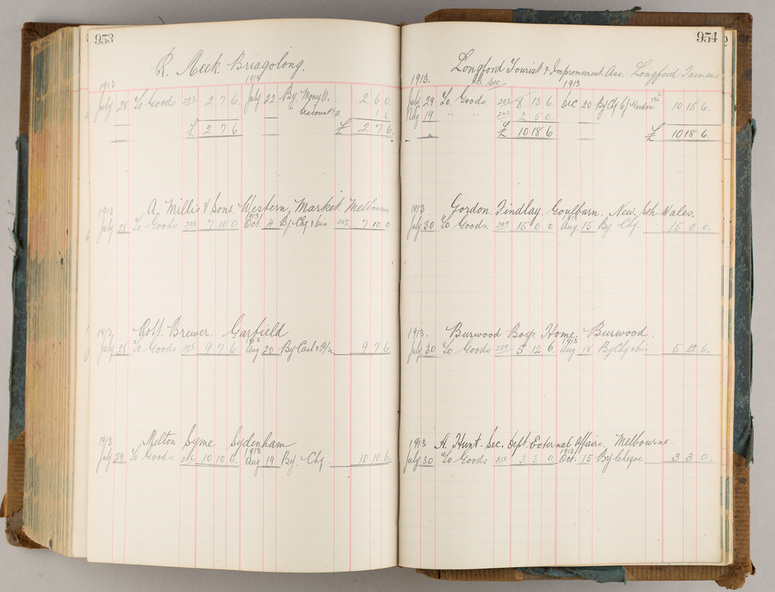 953
R. Meek. Briagolong.
1913 1913
July 28 To Goods 2 7 6 July 22 By Mony O. 2 6 0
Discount 1 6
£ 2 7 6 £ 2 7 6
A. Millis & Sons. Western Market. Melbourne
1913 1913
July 28 To Goods 7 10 0 Oct 4 By Chq 7 10 0
Robt. Brewer. Garfield
1913 1913
July 28 To Goods 9 7 6 Aug 20 By Cash 9 7 6
Melton Syme Sydenham
1913 1913
July 29 To Goods 10 10 6 Aug 19 By Chq 10 10 6
954
Longford Tourist & Improvement Ass. Longford Tasmania
1913. Sec 1913
July 29 To Goods 8 13 6 Dec 20 By Chq 10 18 6
Aug 19 " " 2 5 0
£ 10 18 6 £ 10 18 6
Gordon. Findlay. Goulburn. New. Sth Wales.
1913 1913
July 30 To Goods 15 0 0 Aug 15 By Chq 15 0 0
Burwood Boys Home. Burwood.
1913. 1913
July 30 To Goods 5 12 6 Aug 18 By Chq 5 12 6
A. Hunt. Sec. Dept. External Affairs, Melbourne.
1913 1913
July 30 To Goods 3 3 0 Oct. 15 By Cheque 3 3 0